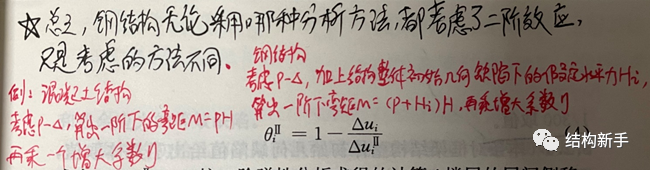 ☆总之,钢结构无论采用哪种分析方法,都考虑了二阶效应,
只是考虑的方法不同。
钢结构
考虑P-Δ,加上结构整体初始几何缺陷下的假定水平力Hi,
算出一阶下弯矩M=(P+Hi)H,再乘增大系数η
例:混凝土结构
考虑P-Δ,算出一阶下的弯矩M=PH
再乘一个增大系数η
θ_i^Ⅱ = 1 - Δu_i / Δu_i^Ⅱ
结构新手